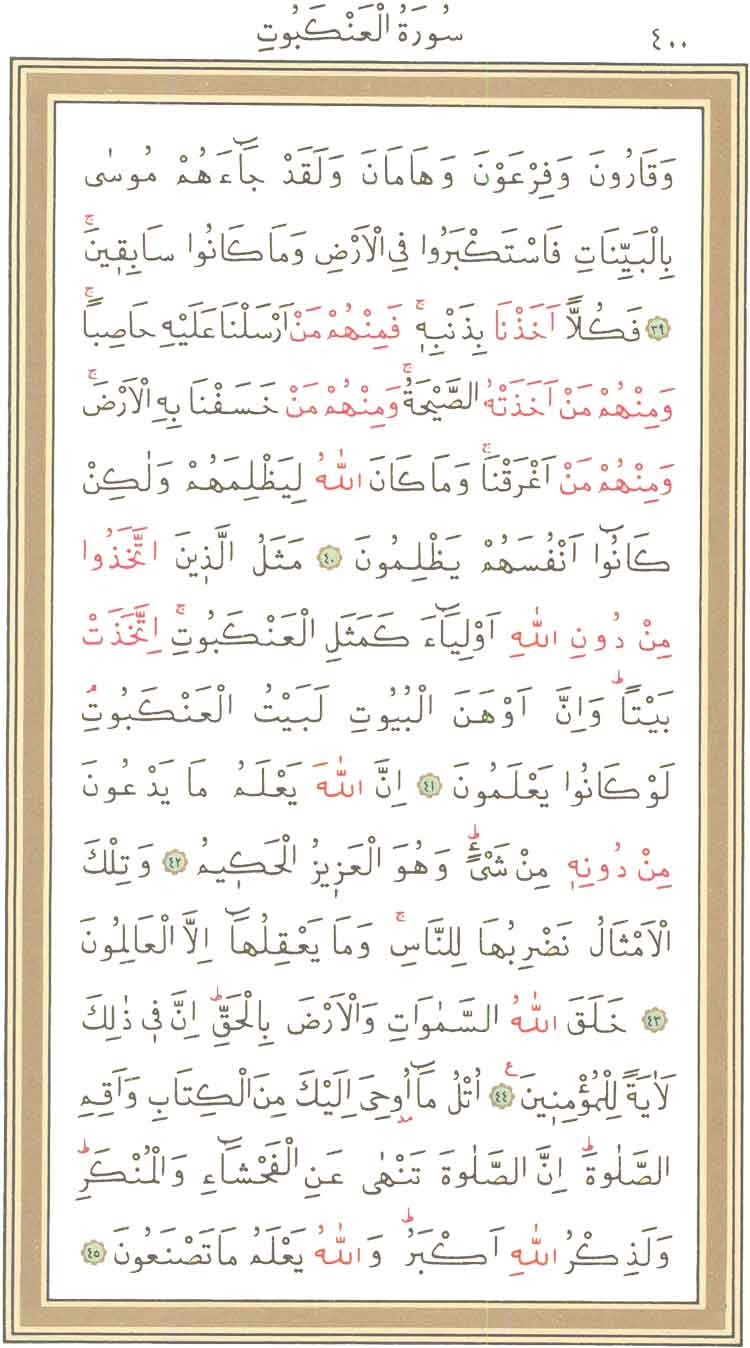 ٤٠٠ سُورَةُ الْعَنْكَبُوتِ
وَقَارُونَ وَفِرْعَوْنَ وَهَامَانَ وَلَقَدْ جَٓاءَهُمْ مُوسٰى
بِالْبَيِّنَاتِ فَاسْتَكْبَرُوا فِى الْاَرْضِ وَمَا كَانُوا سَابِقٖينَۚ
﴿٣٩﴾ فَكُلًّا اَخَذْنَا بِذَنْبِهٖۚ فَمِنْهُمْ مَنْ اَرْسَلْنَا عَلَيْهِ حَاصِباًۚ
وَمِنْهُمْ مَنْ اَخَذَتْهُ الصَّيْحَةُۚ وَمِنْهُمْ مَنْ خَسَفْنَا بِهِ الْاَرْضَۚ
وَمِنْهُمْ مَنْ اَغْرَقْنَاۚ وَمَا كَانَ اللّٰهُ لِيَظْلِمَهُمْ وَلٰكِنْ
كَانُٓوا اَنْفُسَهُمْ يَظْلِمُونَ ﴿٤٠﴾ مَثَلُ الَّذٖينَ اتَّخَذُوا
مِنْ دُونِ اللّٰهِ اَوْلِيَٓاءَ كَمَثَلِ الْعَنْكَبُوتِۚ اِتَّخَذَتْ
بَيْتاًؕ وَاِنَّ اَوْهَنَ الْبُيُوتِ لَبَيْتُ الْعَنْكَبُوتِۘ
لَوْ كَانُوا يَعْلَمُونَ ﴿٤١﴾ اِنَّ اللّٰهَ يَعْلَمُ مَا يَدْعُونَ
مِنْ دُونِهٖ مِنْ شَىْءٍؕ وَهُوَ الْعَزٖيزُ الْحَكٖيمُ ﴿٤٢﴾ وَتِلْكَ
الْاَمْثَالُ نَضْرِبُهَا لِلنَّاسِۚ وَمَا يَعْقِلُهَٓا اِلَّا الْعَالِمُونَ
﴿٤٣﴾ خَلَقَ اللّٰهُ السَّمٰوَاتِ وَالْاَرْضَ بِالْحَقِّؕ اِنَّ فٖى ذٰلِكَ
لَاٰيَةً لِلْمُؤْمِنٖينَ ﴿٤٤﴾ ع اُتْلُ مَٓا اُوحِىَ اِلَيْكَ مِنَ الْكِتَابِ وَاَقِمِ
الصَّلٰوةَؕ اِنَّ الصَّلٰوةَ تَنْهٰى عَنِ الْفَحْشَٓاءِ وَالْمُنْكَرِؕ
وَلَذِكْرُ اللّٰهِ اَكْبَرُؕ وَاللّٰهُ يَعْلَمُ مَا تَصْنَعُونَ ﴿٤٥﴾